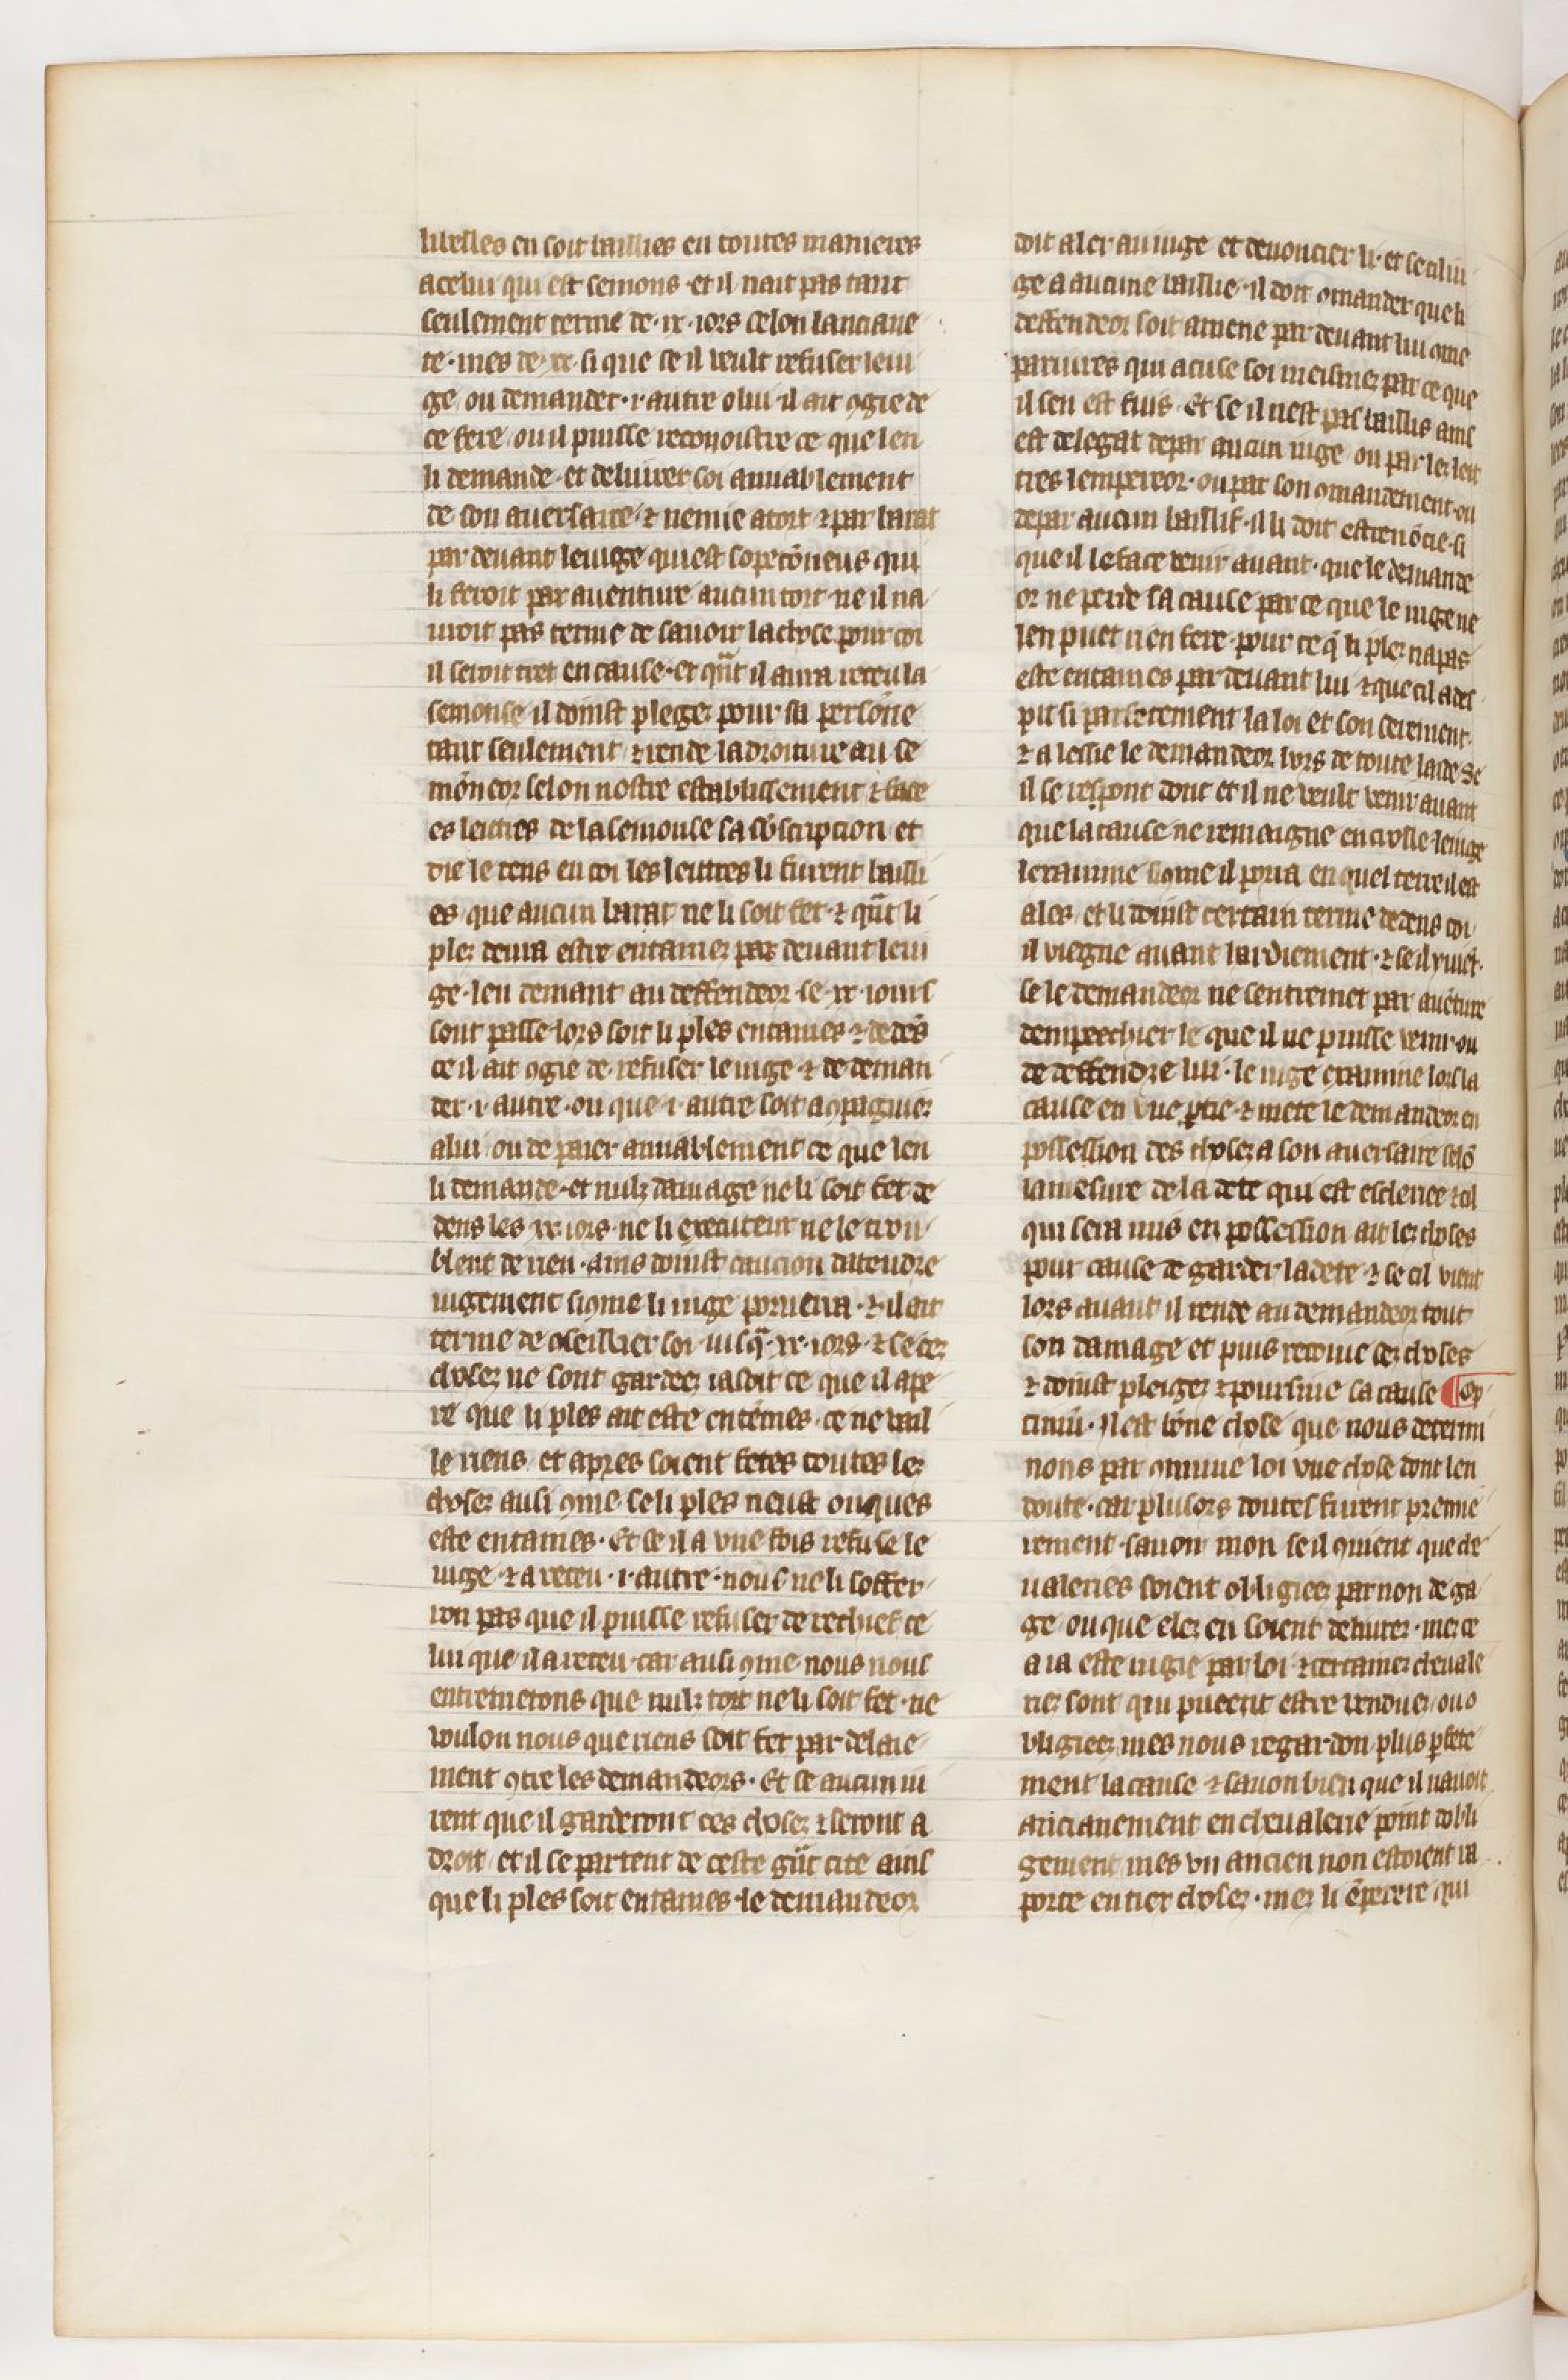 libelles en soit bailliés en toutes manieres
acelui qui est semons · et il nait pas tant
seulement terme de · ix · iors celon lanciane
te · mes de · xx · si que se il veult refuser leiu
ge / ou demander · i · autre o lui il ait ꝯgie de
ce fere / ou il puisse reconoistre ce que len
li demande · et delivrer soi amiablement
de son aversaire · ⁊ nemie a tort ⁊ par barat
par devant le iuge qui est sopeçōneus qui
li feroit par aventure aucun tort · ne il na
uroit pas terme de savoir la chose pour coi
il seroit tret en cause · et qūt il aura receu la
semonse il doinst pleges pour sa persōne
tant seulement / ⁊ rende la droiture au se
mōneor selon nostre establissement ⁊ face
es leittres de la semonse sa sōscripcion et
die le tens en coi les leittres li furent bailli
es / que aucun barat ne li soit fet · ⁊ qūt li
plez devra estre entamez par devant le iu
ge · len demant au deffendeor se · xx · iours
sont passe · lors soit li ples entames · ⁊ dedēs
ce il ait ꝯgie de refuser le iuge · ⁊ de deman
der · i · autre · ou que · i · autre soit acpagniez
a lui / ou de paier amiablement ce que len
li demande · et nulz damage ne li soit fet de
dens les · xx · iors · ne li executeur ne le trou
blent de rien · ains doinst caucion datendre
iugement si ꝯme li iuge porverra · ⁊ il ait
terme de ꝯseillier soi · iusqa · xx · iors · ⁊ se cez
chosez ne sont gardeez ia soit ce que il ape
re que li ples ait este entēmes · ce ne vail
le riens / et apres soient fetes toutes lez
chosez ausi ꝯme se li ples neust onques
este entames · Et se il a une fois refuse le
iuge · ⁊ a receu · i · autre · nous ne li soffer
ron pas que il puisse refuser de rechief ce
lui que il a receu · car ausi ꝯme nous nous
entremetons que nulz tort ne li soit fet · ne
voulon nous que riens soit fet par delaie
ment ꝯtre les demandeors · Et se aucun iu
rent que il garderont ces chosez ⁊ seront a
droit / et il se partent de ceste gūt cite ains
que li ples soit entames · le demandeor
doit aler au iuge et denoncier li · et se cil iu
ge a aucune baillie · il doit ꝯmander que li
deffendeor soit amene par devant lui ꝯme
pariures qui acuse soi meismez par ce que
il sen est fuis · Et se il nest pas baillis ains
est delegat depar aucun iuge / ou par lez leit
tres lempereor · ou par son ꝯmandement · ou
depar aucun baillif · il li doit estre nōcie · si
que il le face venir avant · que le demande
or ne perde sa cause par ce que le iuge ne
len puet rien fere · pour ce q̄ li plez na pas
este entames par devant lui · ⁊ que cil a des
pit si parfetement la loi et son serement ·
⁊ a lessie le demandeor hors de toute laide · Se
il se respont dont et il ne veult venir avant
que la cause ne remaigne en croille · le iuge
lexamine ꝯme il porra en quel terre il est
ales / et li doinst certain terme dedens coi
il viegne avant hardiement · ⁊ se il ni vīet ·
se le demandeor ne sentremet par avēture
dempeechier le que il ne puisse venir · ou
de deffendre lui · le iuge examine lors la
cause en une ꝑtie · ⁊ mete le demandeor en
possession des chosez a son aversaire selō
la mesure de la dete qui est esclerice · ⁊ cil
qui sera mis en possession ait lez choses
pour cause de garder la dete · ⁊ se cil vient
lors avant / il rende au demandeor tout
son damage et puis recoive sez choses
⁊ doinst pleigez ⁊ poursuie sa cause ¶ Op
timū · Il est bōne chose que nous determi
nons par ꝯmune loi une chose dont len
doute · car plusors doutes furent premie
rement · savon mon se il ꝯvient que che
valeries soient obligiees par non de ga
ge / ou que elez en soient deiurez · mez ce
a ia este iugie par loi · ⁊ certainez chevale
riez sont qui pueent estre venduez / ou o
bligieez · mes nous regardon plus ꝑfete
ment la cause · ⁊ savon bien que il navoit
ancianement en chevalerie point dobli
gement / mes un ancien non estoient ra
porte en tiex chosez · mez li ēperere qui